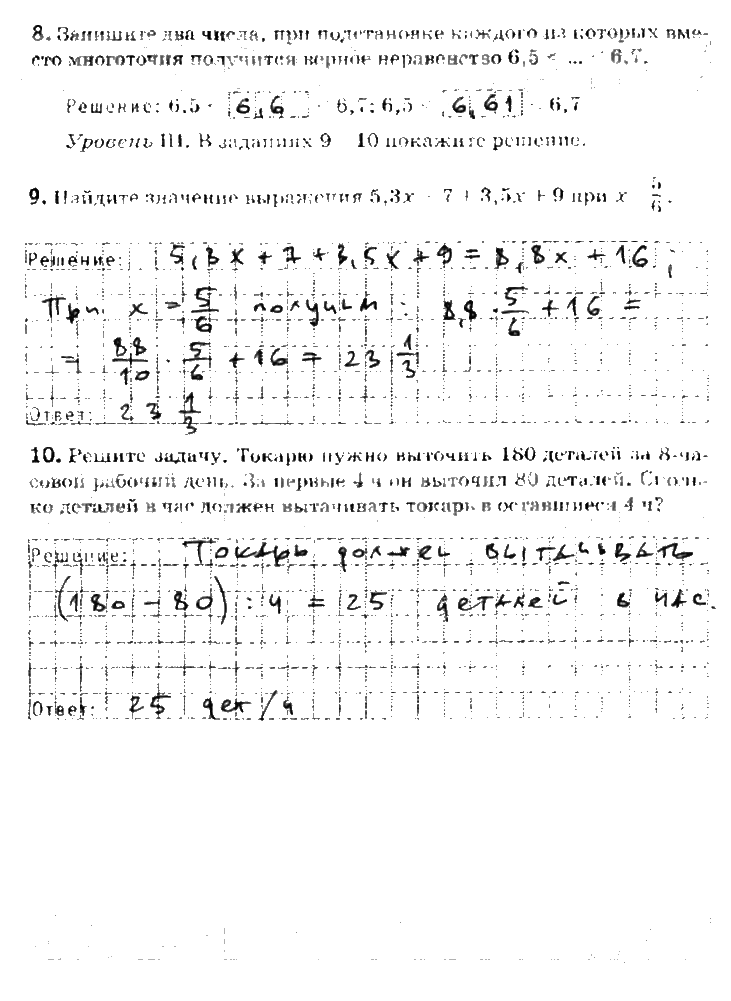 8. Запишите два числа, при подстановке каждого из которых вме-
сто многоточия получится верное неравенство 6,5 < ... < 6,7.
Решение: 6,5 < 6,6 < 6,7; 6,5 < 6,61 < 6,7
Уровень III. В заданиях 9 10 покажите решение.
9. Найдите значение выражения 5,3x + 7 + 3,5x + 9 при x 5/6.
Решение: 5,3x + 7 + 3,5x + 9 = 8,8x + 16;
При x = 5/6 получим: 8,8 · 5/6 + 16 =
= 88/10 · 5/6 + 16 = 23 1/3
Ответ: 23 1/3
10. Решите задачу. Токарю нужно выточить 180 деталей за 8-ча-
совой рабочий день. За первые 4 ч он выточил 80 деталей. Сколь-
ко деталей в час должен вытачивать токарь в оставшиеся 4 ч?
Решение: Токарь должен вытачивать
(180 - 80) : 4 = 25 деталей в час.
Ответ: 25 дет/ч